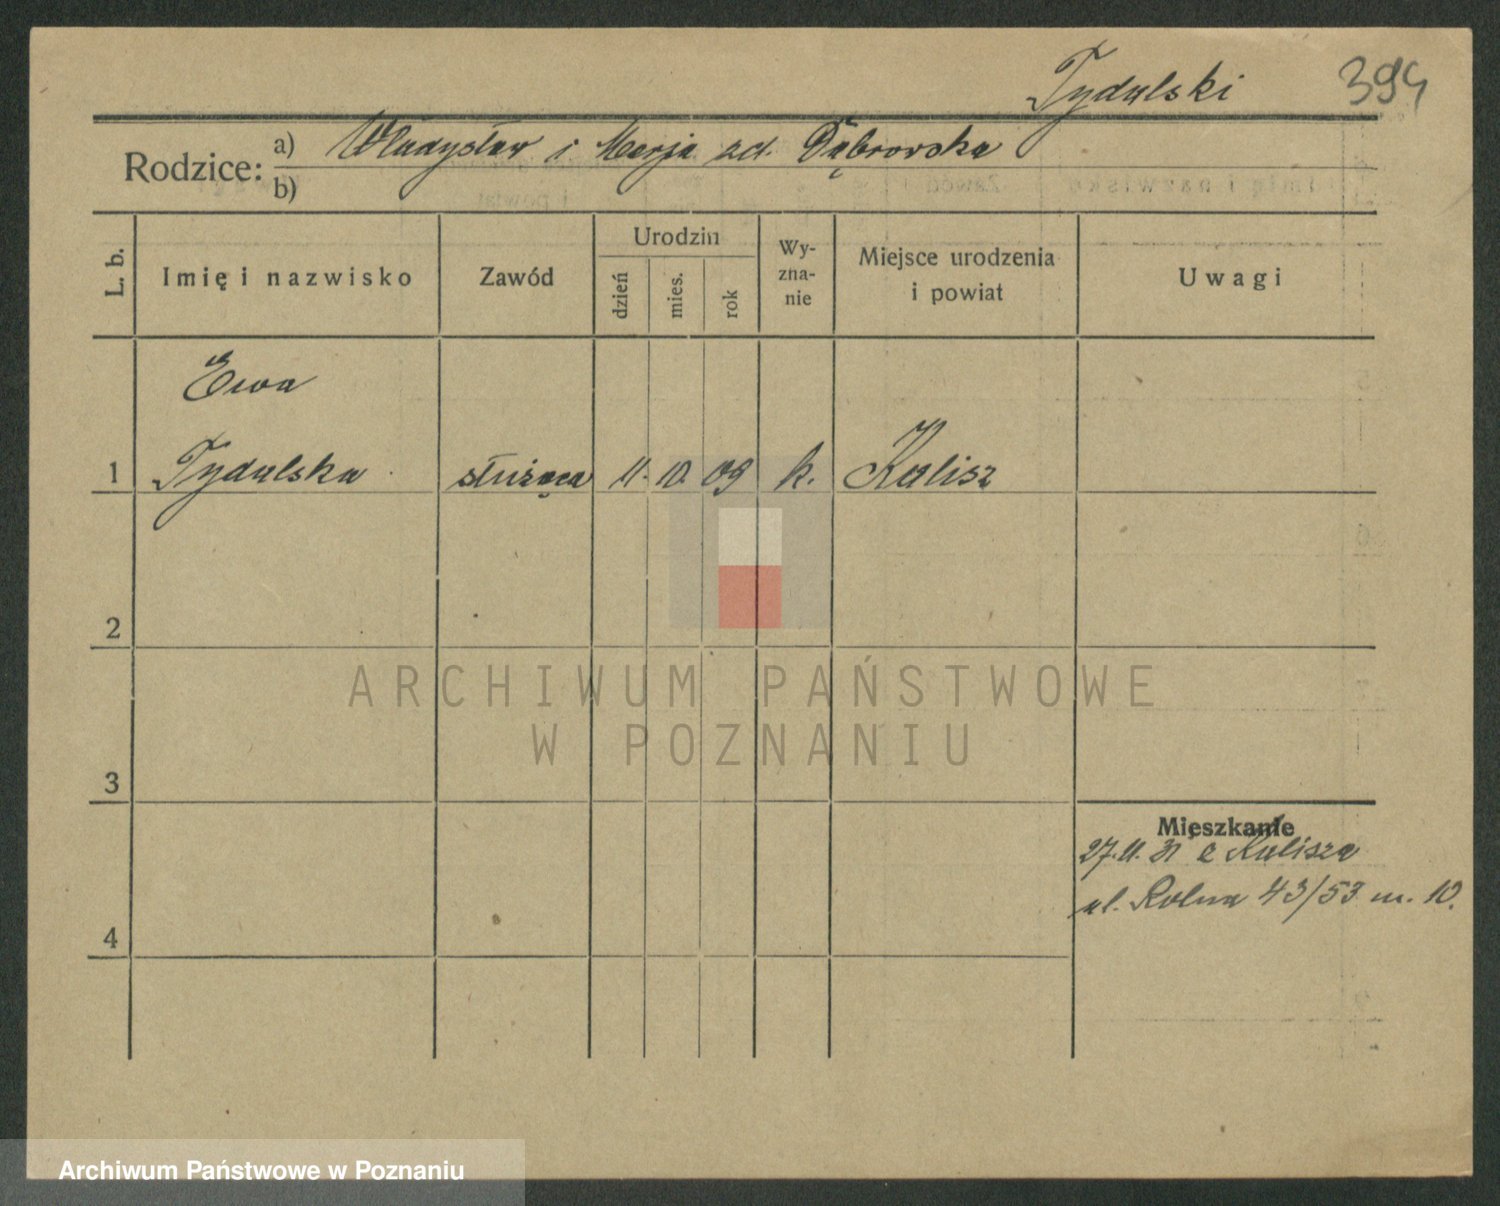 Tydulski 394
Rodzice: a) Władysław i Marja zd. Dąbrowska
b)
L. b. Imię i nazwisko Zawód Urodzin dzień mies. rok Wy-zna-nie Miejsce urodzenia i powiat Uwagi
Ewa
1 Tydulska służąca 11. 10. 09 k. Kalisz
2
ARCHIWUM PAŃSTWOWE
W POZNANIU
3
Mieszkanie
27.11.31 z Kalisza
ul. Rolna 43/53 m. 10.
4
Archiwum Państwowe w Poznaniu